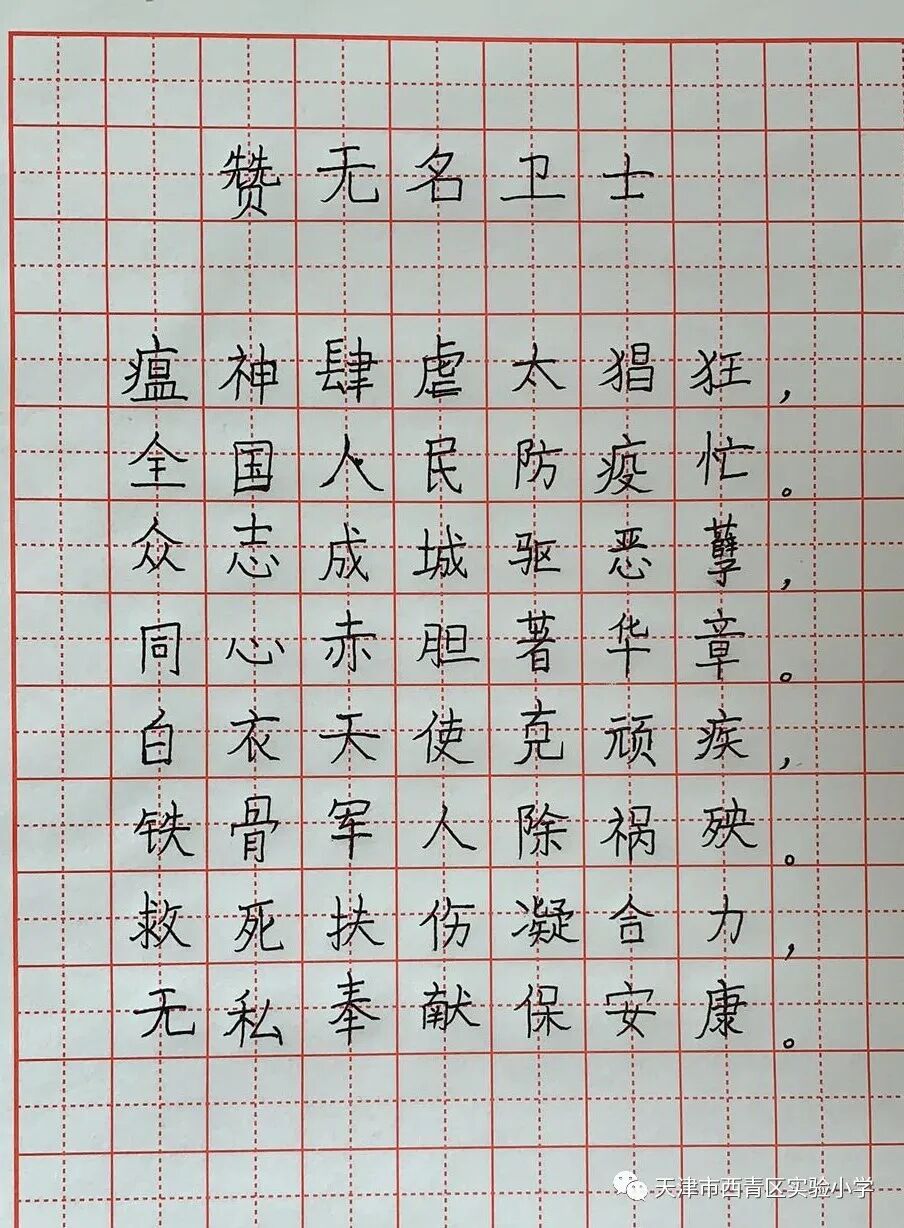 赞无名卫士
瘟神肆虐太猖狂，
全国人民防疫忙。
众志成城驱恶孽，
同心赤胆著华章。
白衣天使克顽疾，
铁骨军人除祸殃。
救死扶伤凝合力，
无私奉献保安康。
天津市西青区实验小学